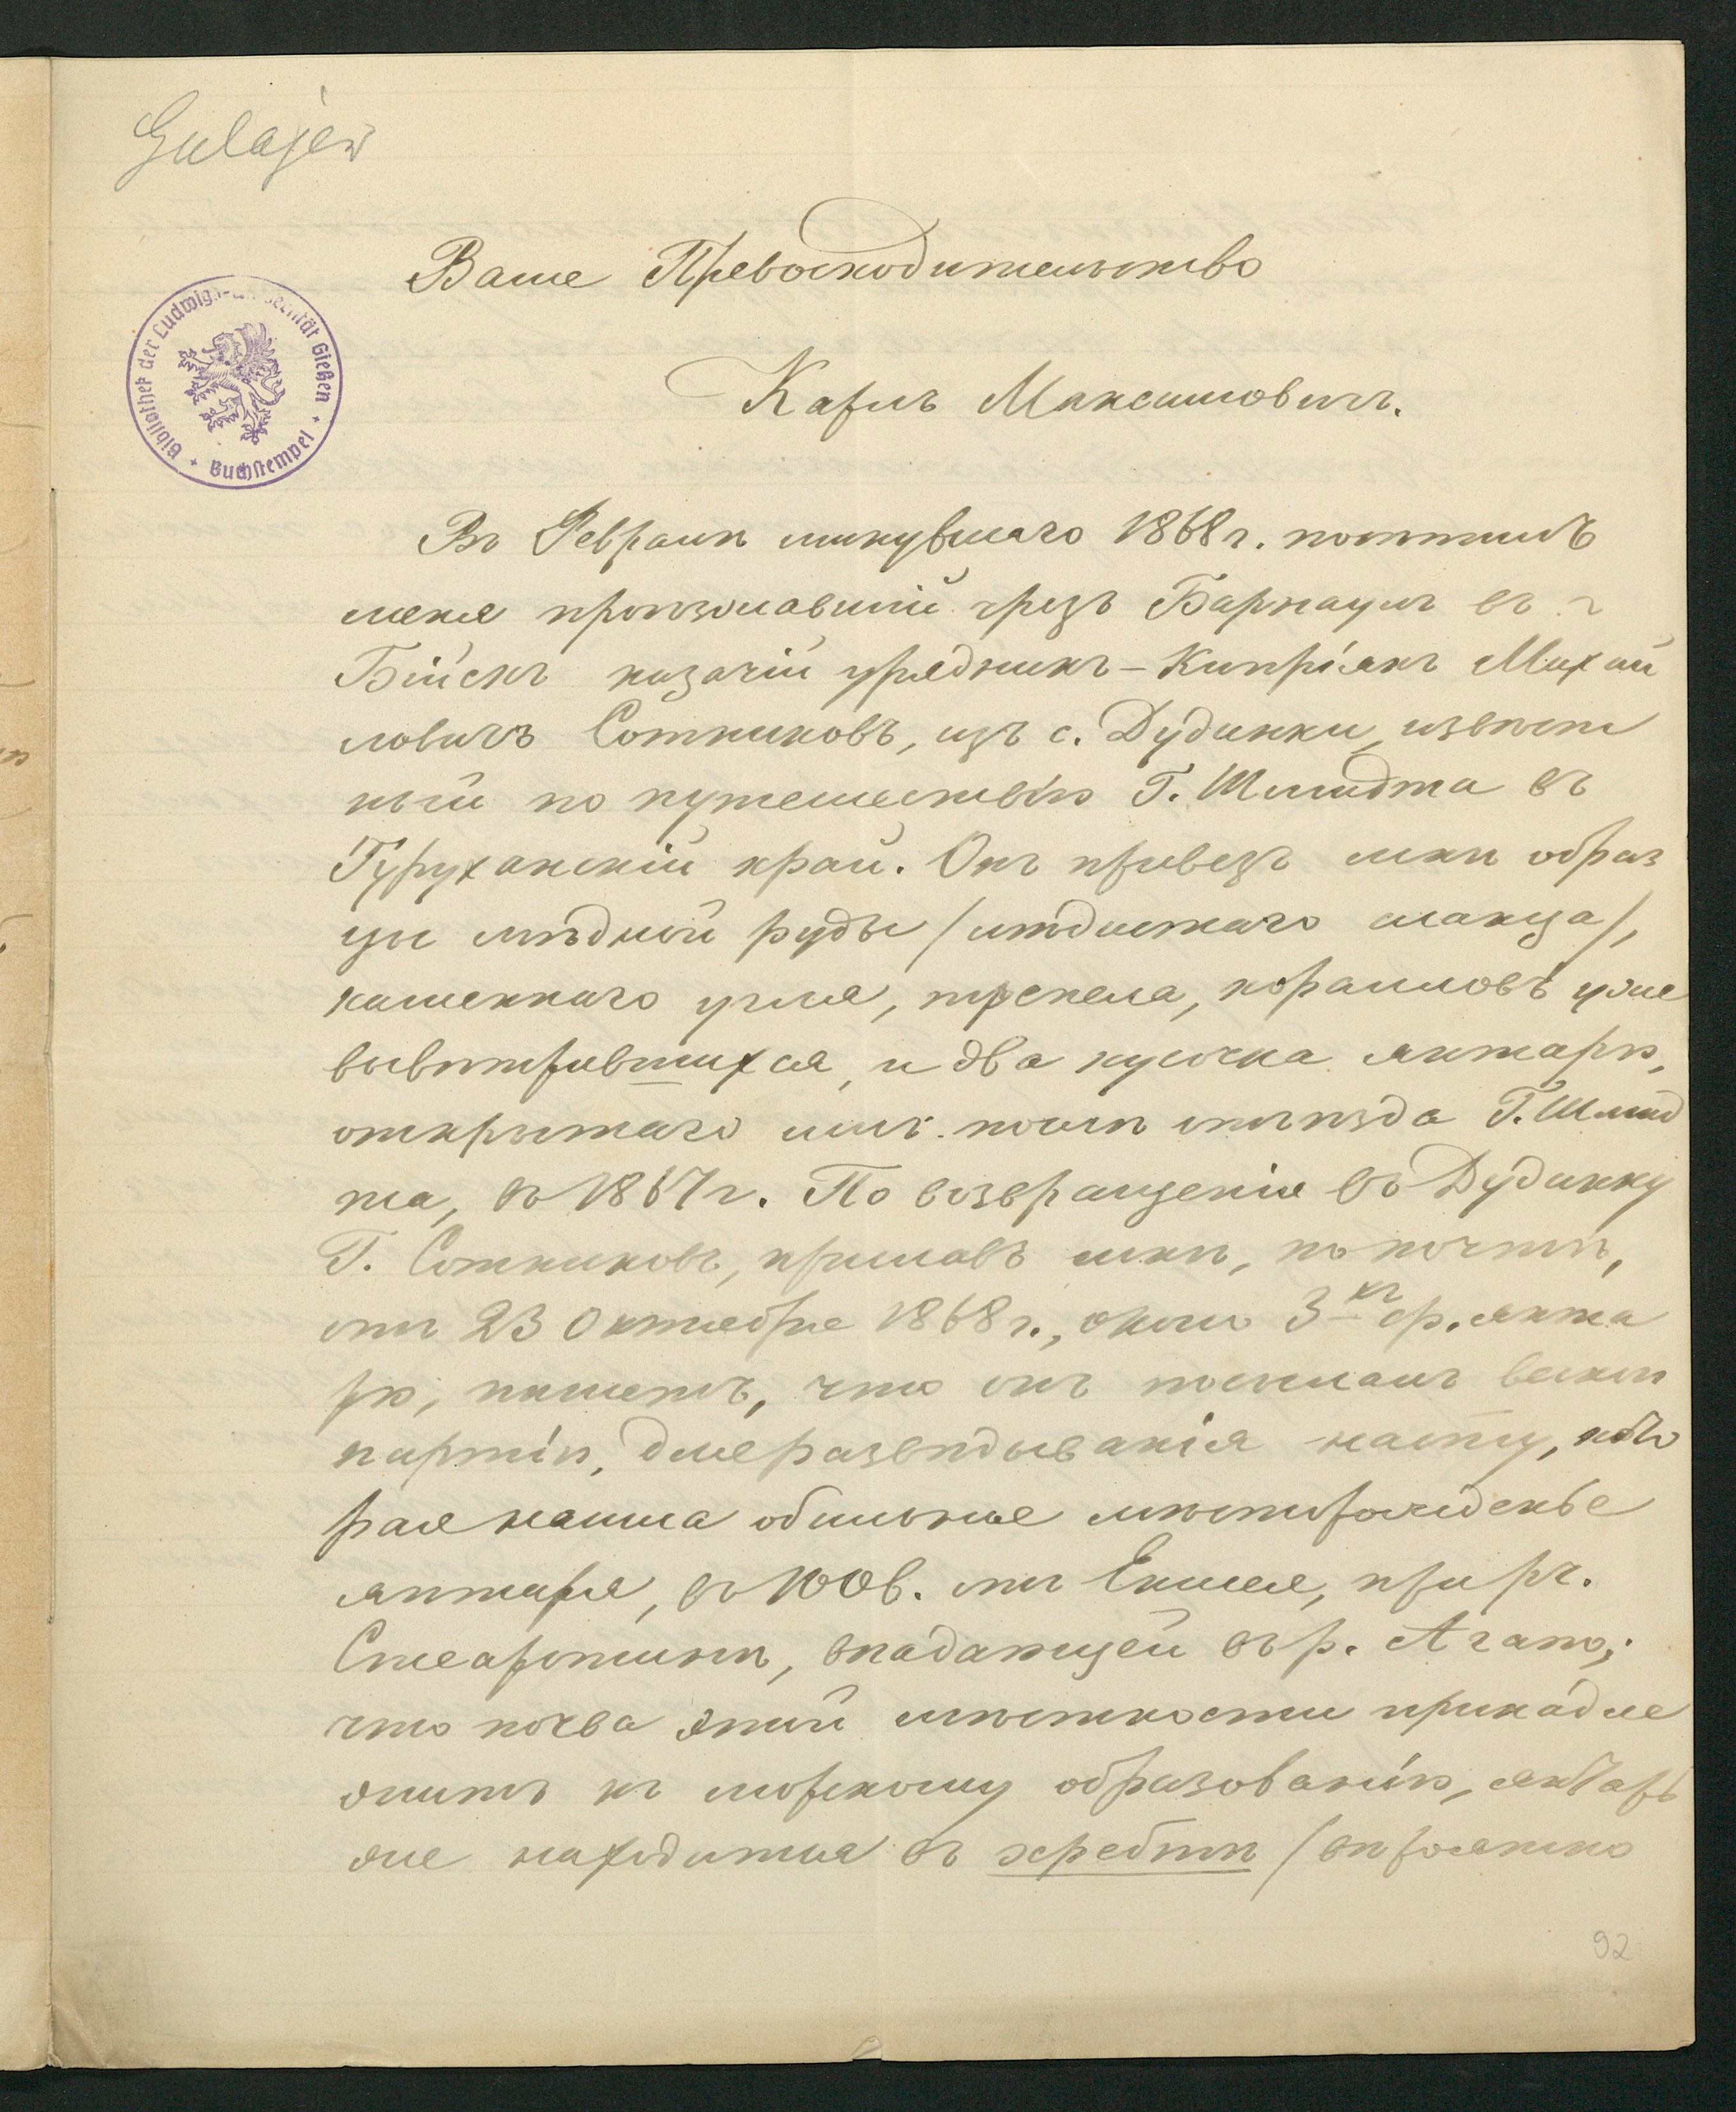 Gulajew
Ваше Превосходительство
Карлъ Максимовичъ.
Bibliothek der Ludwigs-Universität Gießen + Buchstempel +
Въ Февралѣ минувшаго 1868 г. посѣтилъ
меня проѣзжавшій чрезъ Барнаулъ въ г
Бійскъ казачій урядникъ – Кипріянъ Михай
ловичъ Сотниковъ, изъ с. Дудинки, извѣст
ный по путешествію Г. Шмидта въ
Туруханскій край. Онъ привезъ мнѣ образ
цы мѣдной руды /мѣдистаго сланца/,
каменнаго угля, трепела, коралловъ уже
вывѣтрившихся, и два кусочка янтарю,
открытаго имъ послѣ отъѣзда Г. Шмид
та, въ 1867 г. По возвращеніи въ Дудинку
Г. Сотниковъ, приславъ мнѣ, по почтѣ,
отъ 23 Октября 1868 г., около 3-хъ ф. янта
рю, пишетъ, что онъ посылалъ весною
партію, для развѣдыванія, кото
рая нашла обильное мѣсторожденье
янтаря, въ 100 в. отъ Енисея, при рч.
впадающей въ р. Агапо;
что почва этой мѣстности принадле
житъ къ морскому образованію, янтарь
же находится въ хребтѣ /вѣроятно
92